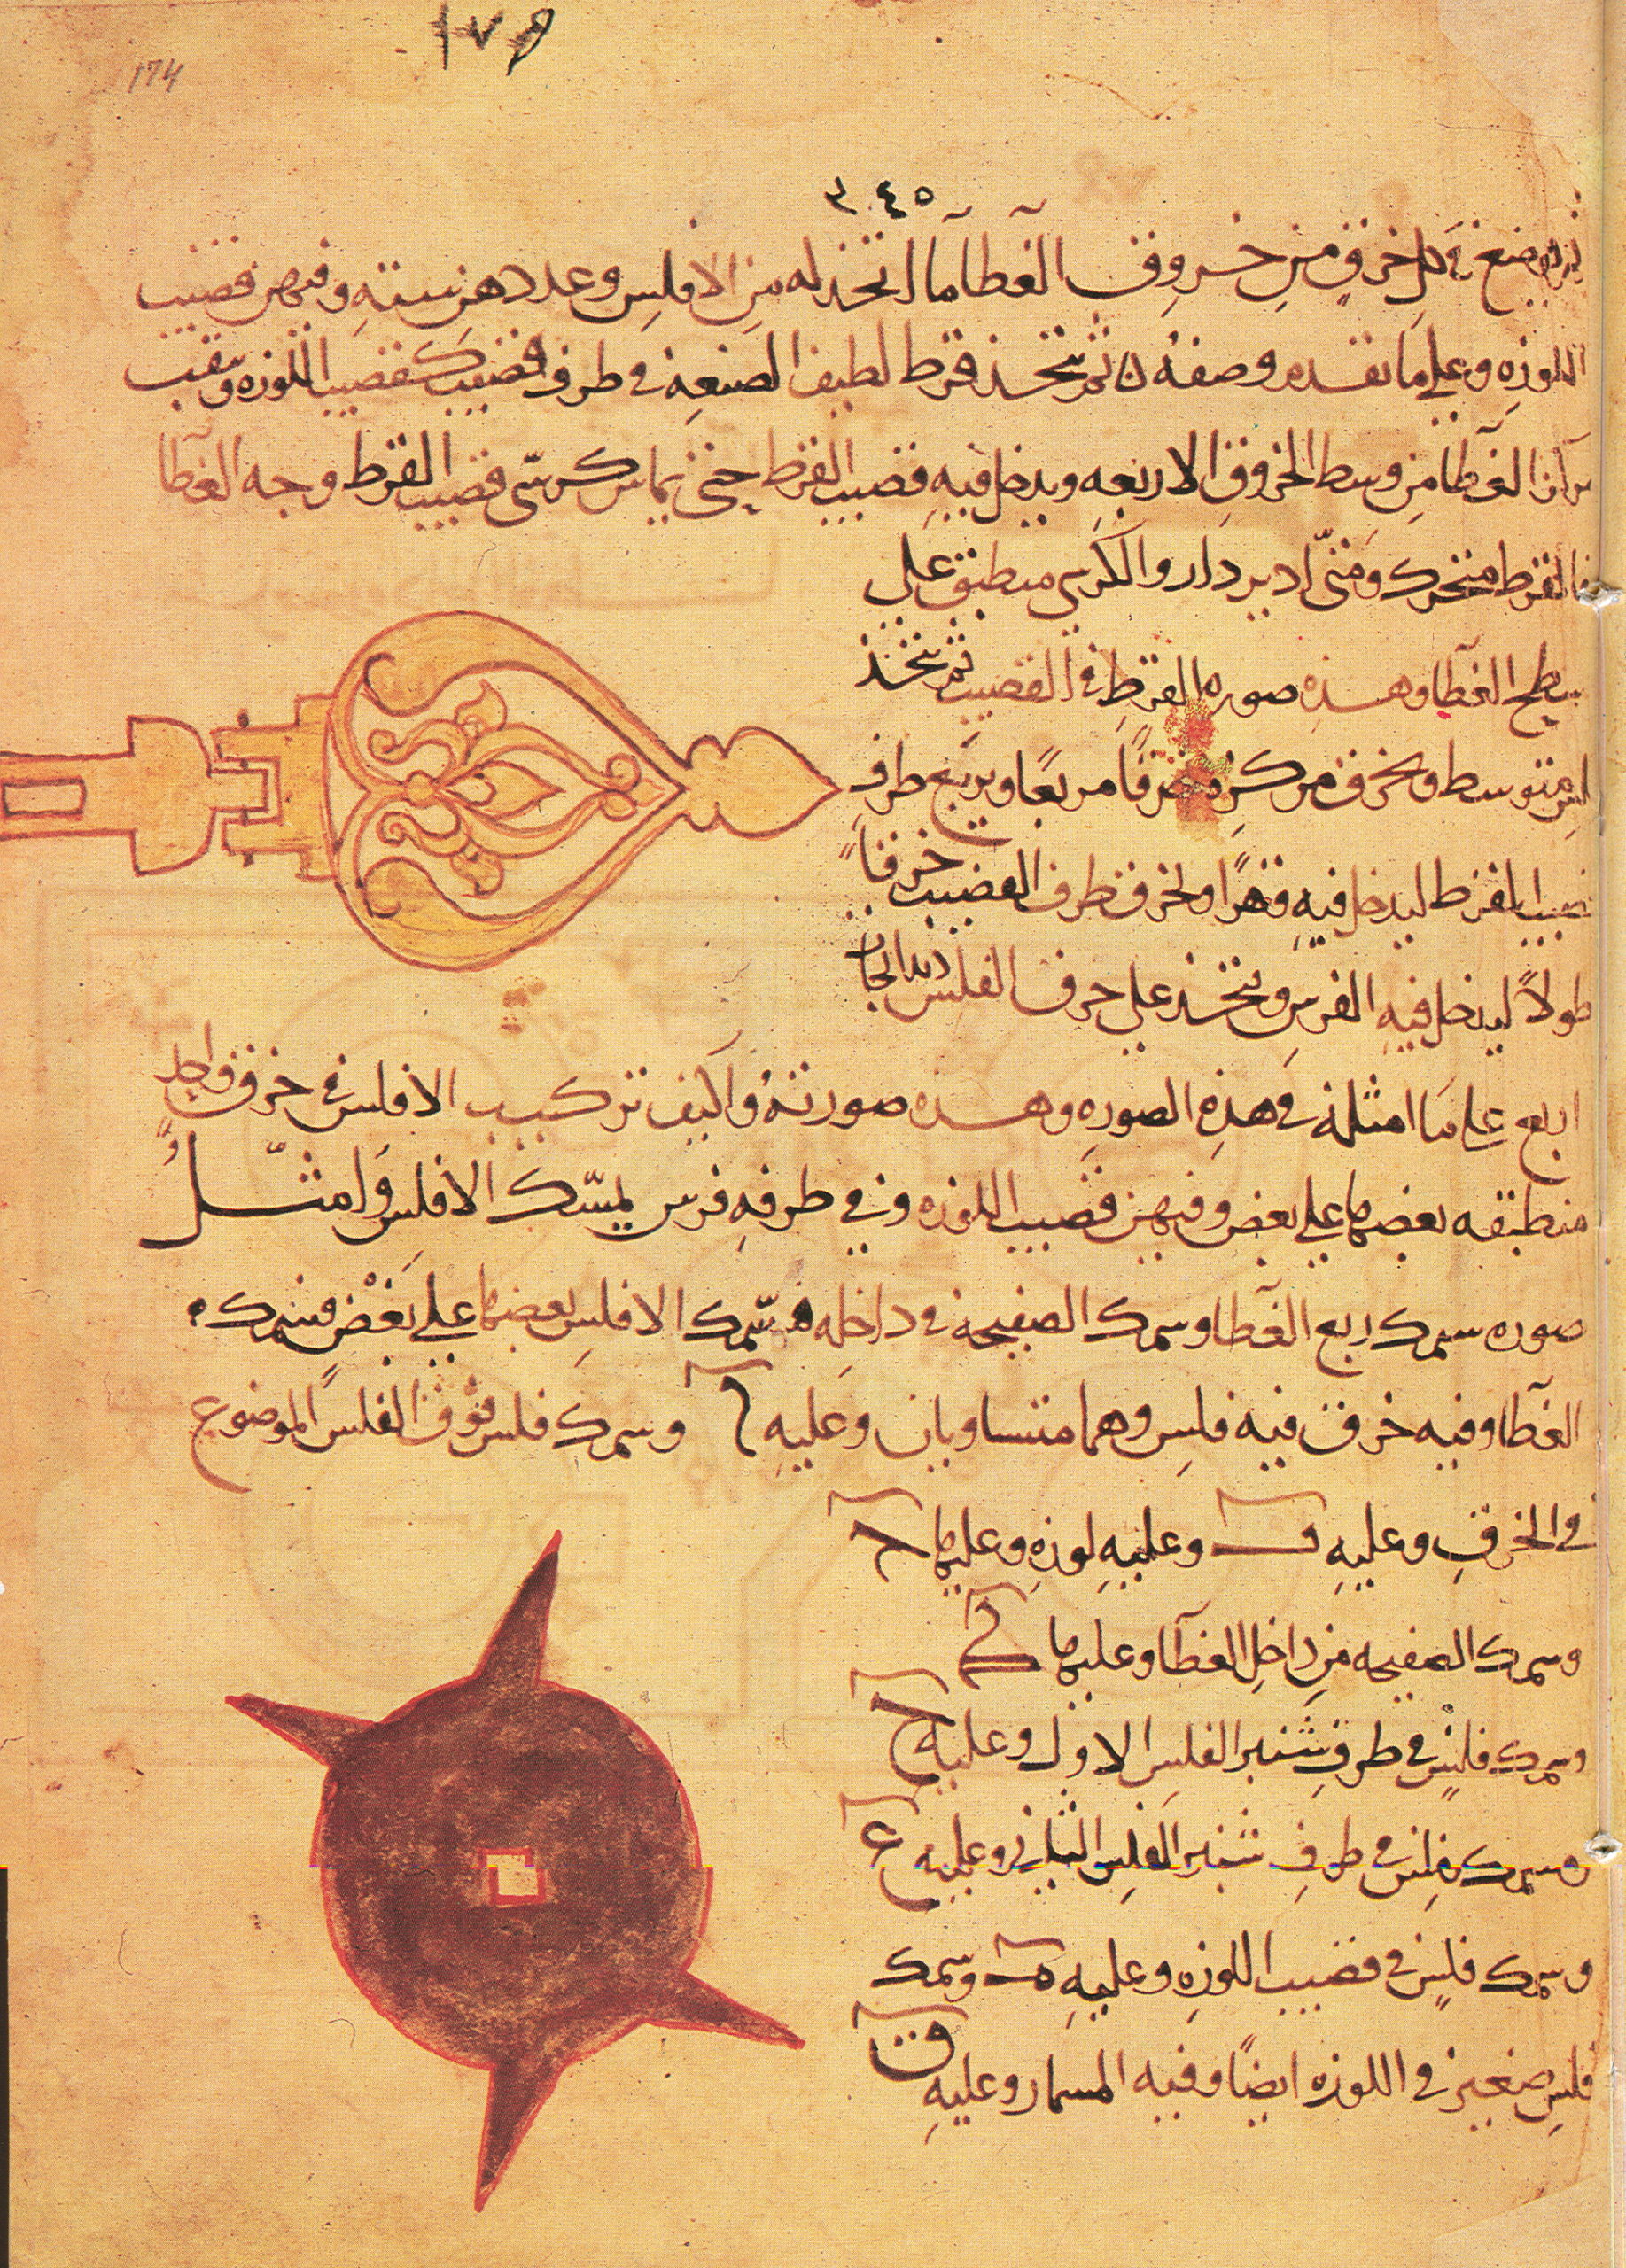 ١٧٩
174
٣٤٥
يوضع في كل خرق من خروق الغطا ما اتخذ له من الافلس وعددهن سته وفيهن قضيب
اللوزه وعلي ما تقدم وصفه ثم يتخذ قرط لطيف الصنعه في طرف قضيب كقضيب اللوزه ويثقب
الغطا من وسط الخروق الاربعه ويدخل فيه قضيب القرط حتي يماس كرسي قضيب القرط وجه الغطا
فالقرط متحرك ومتي ادير دار والكرسي منطبق علي
سطح الغطا وهذه صوره القرط في القضيب ثم يتخذ
متوسط ويخرق مركزه خرقا مربعا ويربع طرف
قضيب القرط ليدخل فيه قهرا ويخرق طرف القضيب خرقا
طولا ليدخل فيه الفرس ويتخذ علي حرف الفلس
اربع علي ما امثله في هذه الصوره وهذه صورته واكيف تركيب الافلس في خرق واحد
منطبقه بعضها علي بعض وفيهن قضيب اللوزه وفي طرفه فرس يمسك الافلس وامثل
صوره سمك ربع الغطا وسمك الصفيحه في داخله وسمك الافلس بعضها علي بعض فسمك
الغطا وفيه خرق فيه فلس وهما متساويان وعليه آ وسمك فلس فوق الفلس الموضوع
في الخرق وعليه ب وعليه لوزه وعليها
وسمك الصفيحه من داخل الغطا وعليها
وسمك فلس في طرف شنبر الفلس الاول وعليه
وسمك فلس في طرف شنبر الفلس الثاني وعليه
وسمك فلس في قضيب اللوزه وعليه وسمك
فلس صغير في اللوزه ايضا وفيه المسمار وعليه